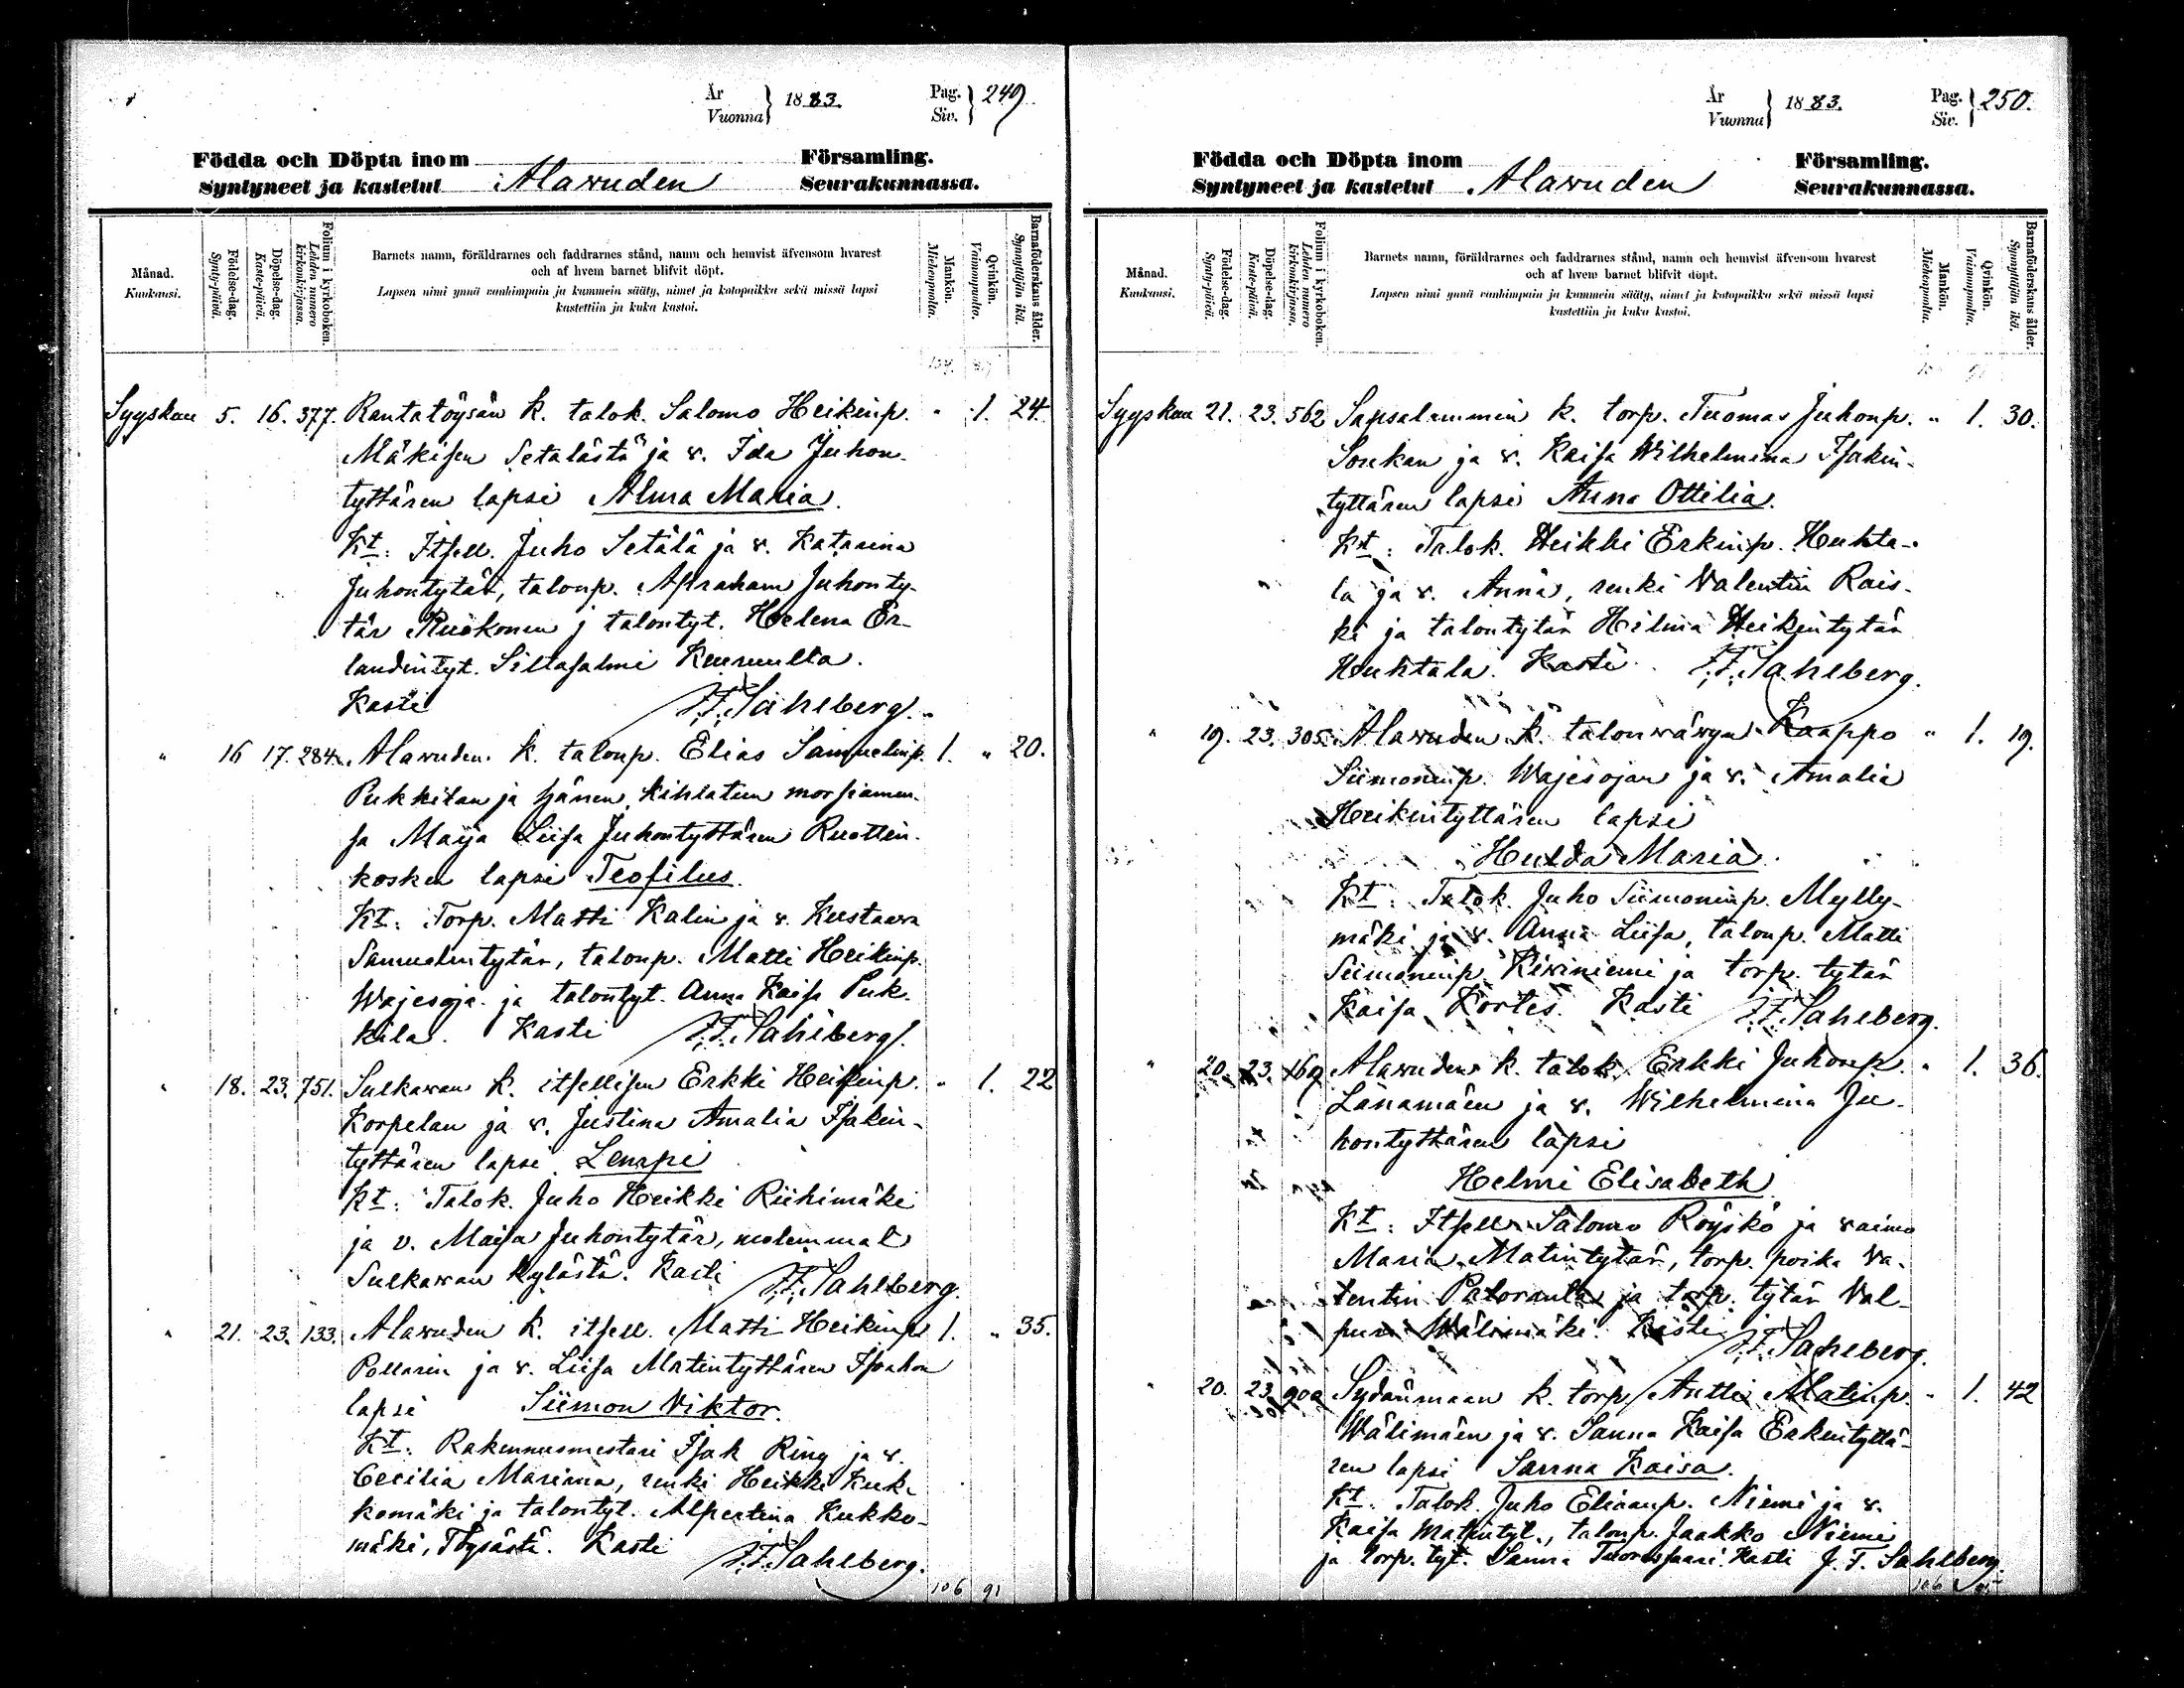 År
Vuonna } 1883. Pag.
Siv. } 249.
Födda och Döpta inom Församling.
Syntyneet ja kastetut Alavuden Seurakunnassa.
Månad.
Kuukausi.
Födelse-dag.
Synty-päivä.
Döpelse-dag.
Kaste-päivä.
Folium i kyrkoboken.
Lehden numero
kirkonkirjassa.
Barnets namn, föräldrarnes och faddrarnes stånd, namn och hemvist äfvensom hvarest
och af hvem barnet blifvit döpt.
Lapsen nimi ynnä vanhimpain ja kummein sääty, nimet ja kotopaikka sekä missä lapsi
kastettiin ja kuka kastoi.
Mankön.
Miehenpuolta.
Qvinkön.
Vaimonpuolta.
Barnaföderskans ålder.
Synnyttäjän ikä.
Syyskuu 5. 16. 377. Rantatöysän k. talok. Salomo Heikinp. " 1. 24.
Mäkisen Setalästä ja v. Ida Juhon-
tyttären lapsi Alma Maria.
Kt: Itsell. Juho Setälä ja v. Katarina
Juhontytär, taloup. Abraham Juhonty-
tär Ruokonen j talontyt. Helena Er-
landintyt. Siltasalmi Keuruulta.
Kasti J. F. Sahlberg.
" 16 17. 284. Alavuden k. taloup. Elias Samuelinp. 1. " 20.
Pukkilan ja hänen kihlatun morsiamen-
sa Maija Liisa Juhontyttären Ruottin-
kosken lapsi Teofilus.
Kt: Torp. Matti Kalin ja v. Kustaava
Samuelintytär, taloup. Matti Heikinp.
Wajesoja ja talontyt. Anna Kaisa Puk-
kila. Kasti J. F. Sahlberg.
" 18. 23. 751. Sulkavan k. itsellisen Erkki Heikinp. " 1. 22
Korpelan ja v. Justina Amalia Isakin-
tyttären lapsi Lempi
Kt: Talok. Juho Heikki Riihimäki
ja v. Maija Juhontytär, molemmat
Sulkavan kylästä. Kasti J. F. Sahlberg.
" 21. 23. 133. Alavuden k. itsell. Matti Heikinp. 1. " 35.
Pollarin ja v. Liisa Matintyttären
lapsi Siimon Viktor.
Kt: Rakennusmestari Isak Ring ja v.
Cecilia Mariina, renki Heikki Kuk-
komäki ja talontyt. Alpertina Kukko-
mäki, Töysästä. Kasti J. F. Sahlberg.
106 91
År
Vuonna } 1883. Pag.
Siv. } 250.
Födda och Döpta inom Församling.
Syntyneet ja kastetut Alavuden Seurakunnassa.
Månad.
Kuukausi.
Födelse-dag.
Synty-päivä.
Döpelse-dag.
Kaste-päivä.
Folium i kyrkoboken.
Lehden numero
kirkonkirjassa.
Barnets namn, föräldrarnes och faddrarnes stånd, namn och hemvist äfvensom hvarest
och af hvem barnet blifvit döpt.
Lapsen nimi ynnä vanhimpain ja kummein sääty, nimet ja kotopaikka sekä missä lapsi
kastettiin ja kuka kastoi.
Mankön.
Miehenpuolta.
Qvinkön.
Vaimonpuolta.
Barnaföderskans ålder.
Synnyttäjän ikä.
Syyskuu 21. 23. 562 Sapsalammin k. torp. Tuomas Juhonp. " 1. 30.
Soukan ja v. Kaisa Wilhelmina Isakin-
tyttären lapsi Anna Ottilia.
Kt: Talok. Heikki Erkinp. Huhta-
la ja v. Anna, renki Valentin Rais-
ki ja talontytär Hilma Heikintytär
Huhtala. Kasti J. F. Sahlberg.
" 19. 23. 305. Alavuden k. talonvävyn Kaappo " 1. 19.
Siimoninp. Wajesojan ja v. Amalia
Heikintyttären lapsi
Hulda Maria.
Kt: Talok. Juho Siimoninp. Mylly-
mäki ja v. Anna Liisa, taloup. Matti
Siimoninp. Kiviniemi ja torp. tytär
Kaisa Kortes. Kasti J. F. Sahlberg.
" 20. 23. 169 Alavuden k. talok. Erkki Juhonp. " 1. 36.
Länamäen ja v. Wilhelmina Ju-
hontyttären lapsi
Helmi Elisabeth
Kt: Itsell. Salomo Röyskö ja vaimo
Maria Matintytär, torp. poika Va-
lentin ja torp. tytär Val-
puri Wälimäki. Kasti J. F. Sahlberg.
" 20. 23. 909 Sydänmaan k. torp. Antti Matinp. " 1. 42
Wälimäen ja v. Sanna Kaisa Erkintyttä-
ren lapsi Sanna Kaisa.
Kt: Talok. Juho Eliaanp. Niemi ja v.
Kaisa Matintyt., taloup. Jaakko Niemi
ja torp. tyt. Sanna Kasti J. F. Sahlberg.
106